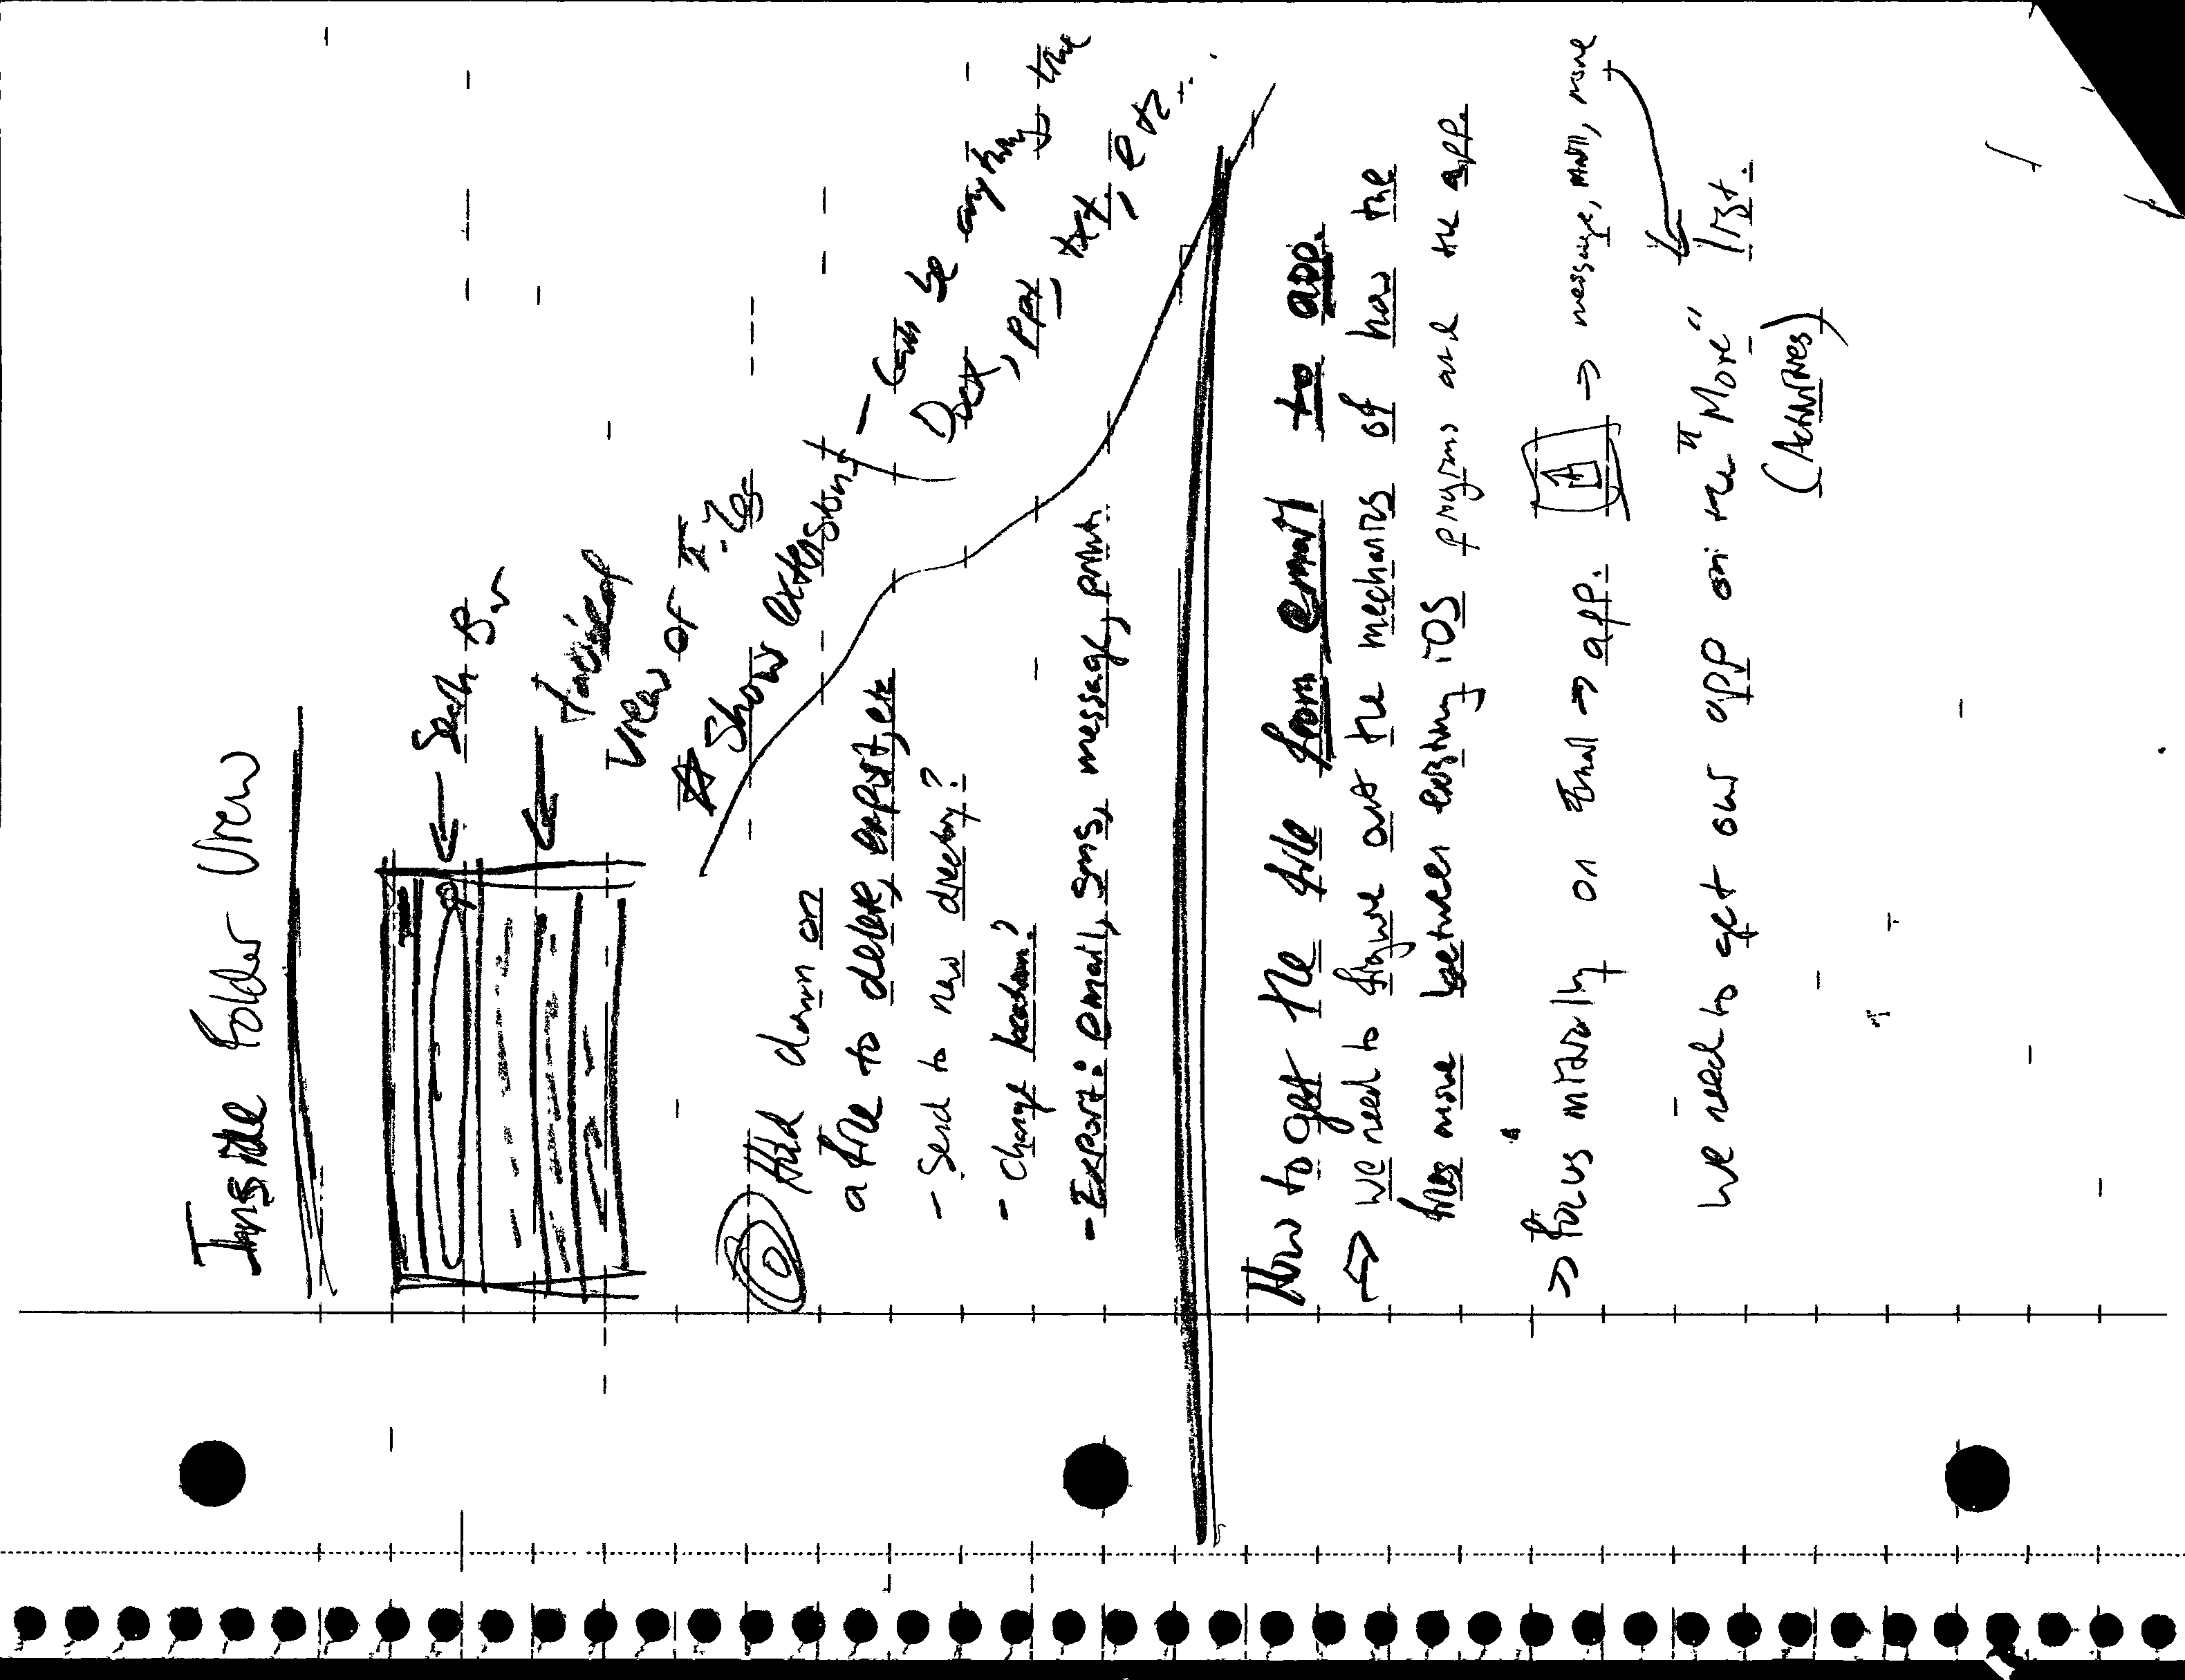 Inside Folder View
← Search Bar
←
view of files
☆ Show extensions — Can be anything the
Docx, ppx, txt, etc...
Hold down on
a file to delete, export, etc
- Send to new directory?
- Change location?
- Export: email, sms, message, print
How to get the file from email to app.
→ We need to figure out the mechanics of how the
files move between existing iOS programs and the app.
→ Focus initially on Email → app. → message, mail, more
We need to get our app on the "More" list.
(Activities)